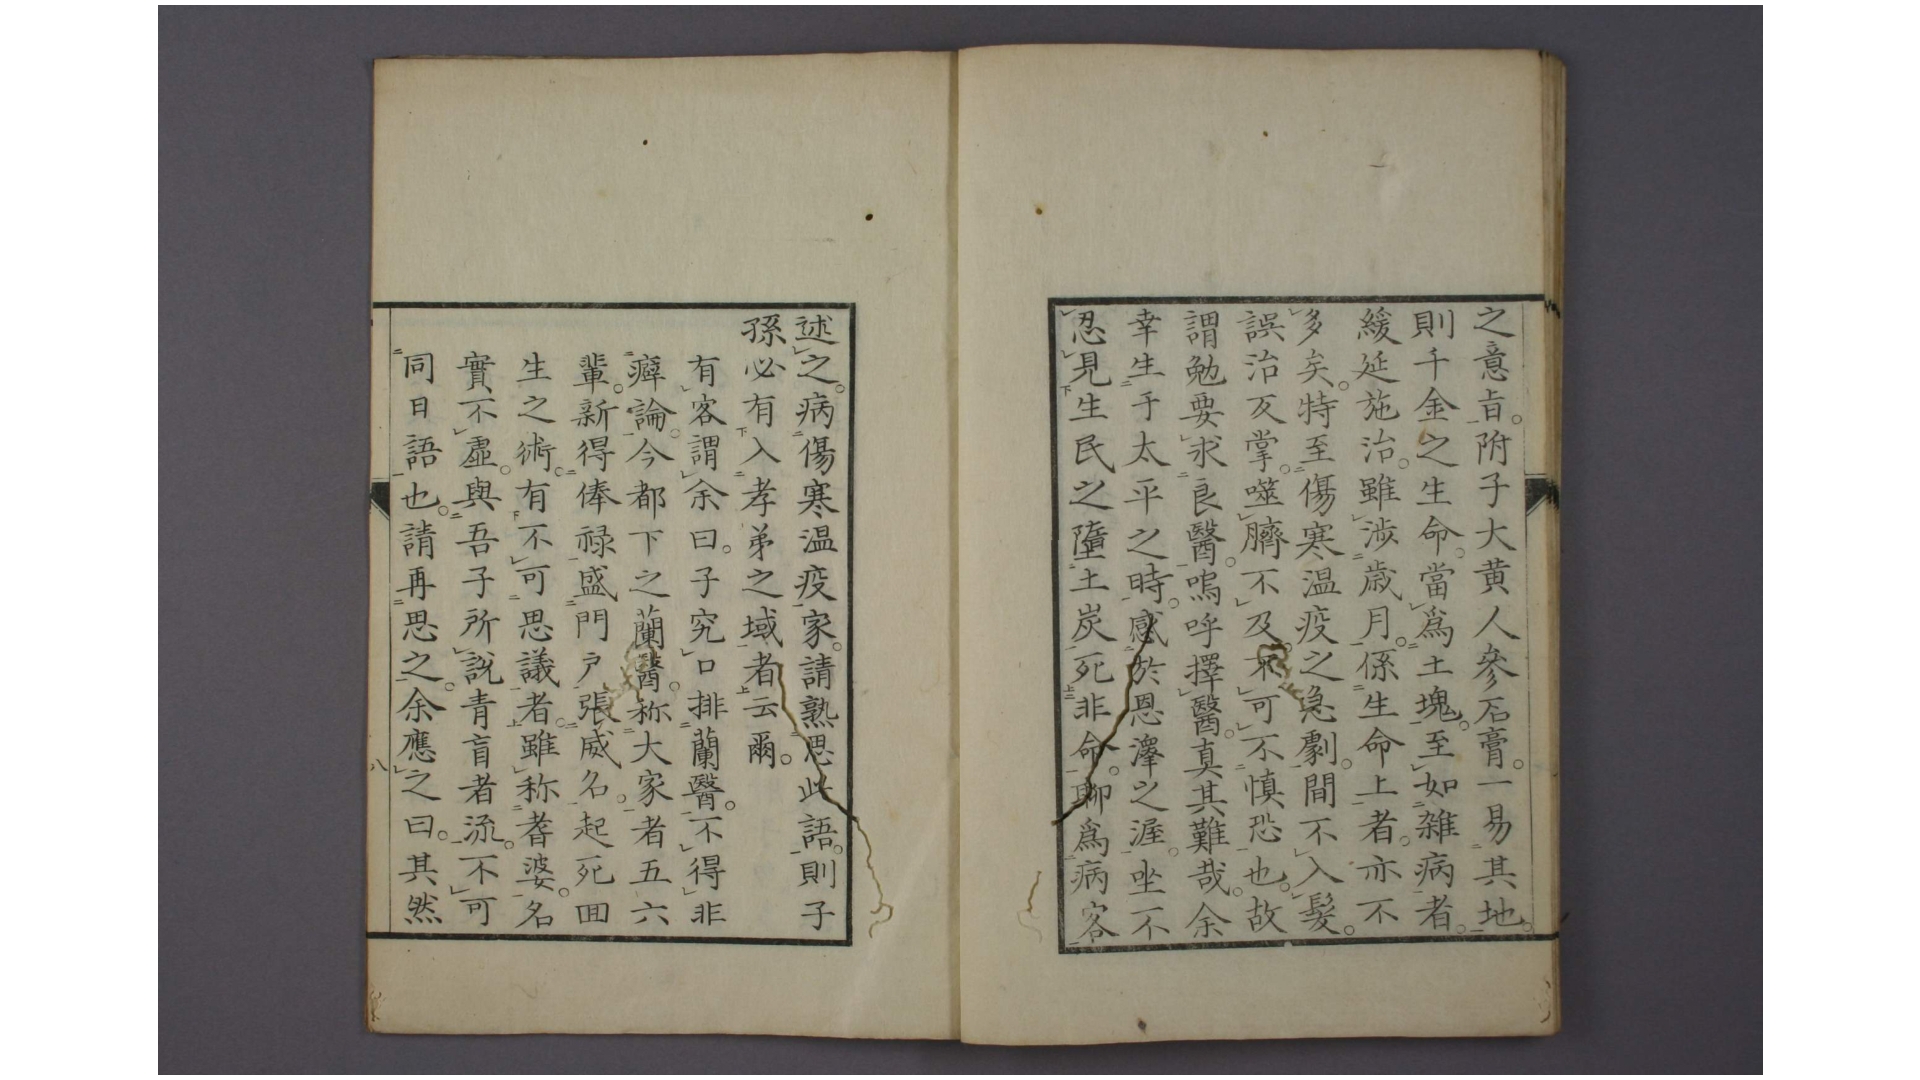 之意旨。附子大黄人參石膏。一易其地。
則千金之生命。當爲土塊。至如雑病者。
緩延施治。雖渉歳月。係生命上者。亦不
多矣。特至傷寒温疫之急劇。間不入髮。
誤治反掌。噬臍不及。不可不慎恐也。故
謂勉要求良醫。嗚呼擇醫。真其難哉。余
幸生于太平之時。感於恩澤之渥。坐不
忍見生民之墮土炭死非命。聊爲病客
述之。病傷寒温疫家。請熟思此語。則子
孫必有入孝弟之域者云爾。
有客謂余曰。子究口排蘭醫。不得非
癖論。今都下之蘭醫。称大家者五六
輩。新得俸禄盛門戸張威名。起死回
生之術。有不可思議者。雖称耆婆。名
實不虚。與吾子所説青盲者流。不可
同日語也。請再思之。余應之曰。其然
八